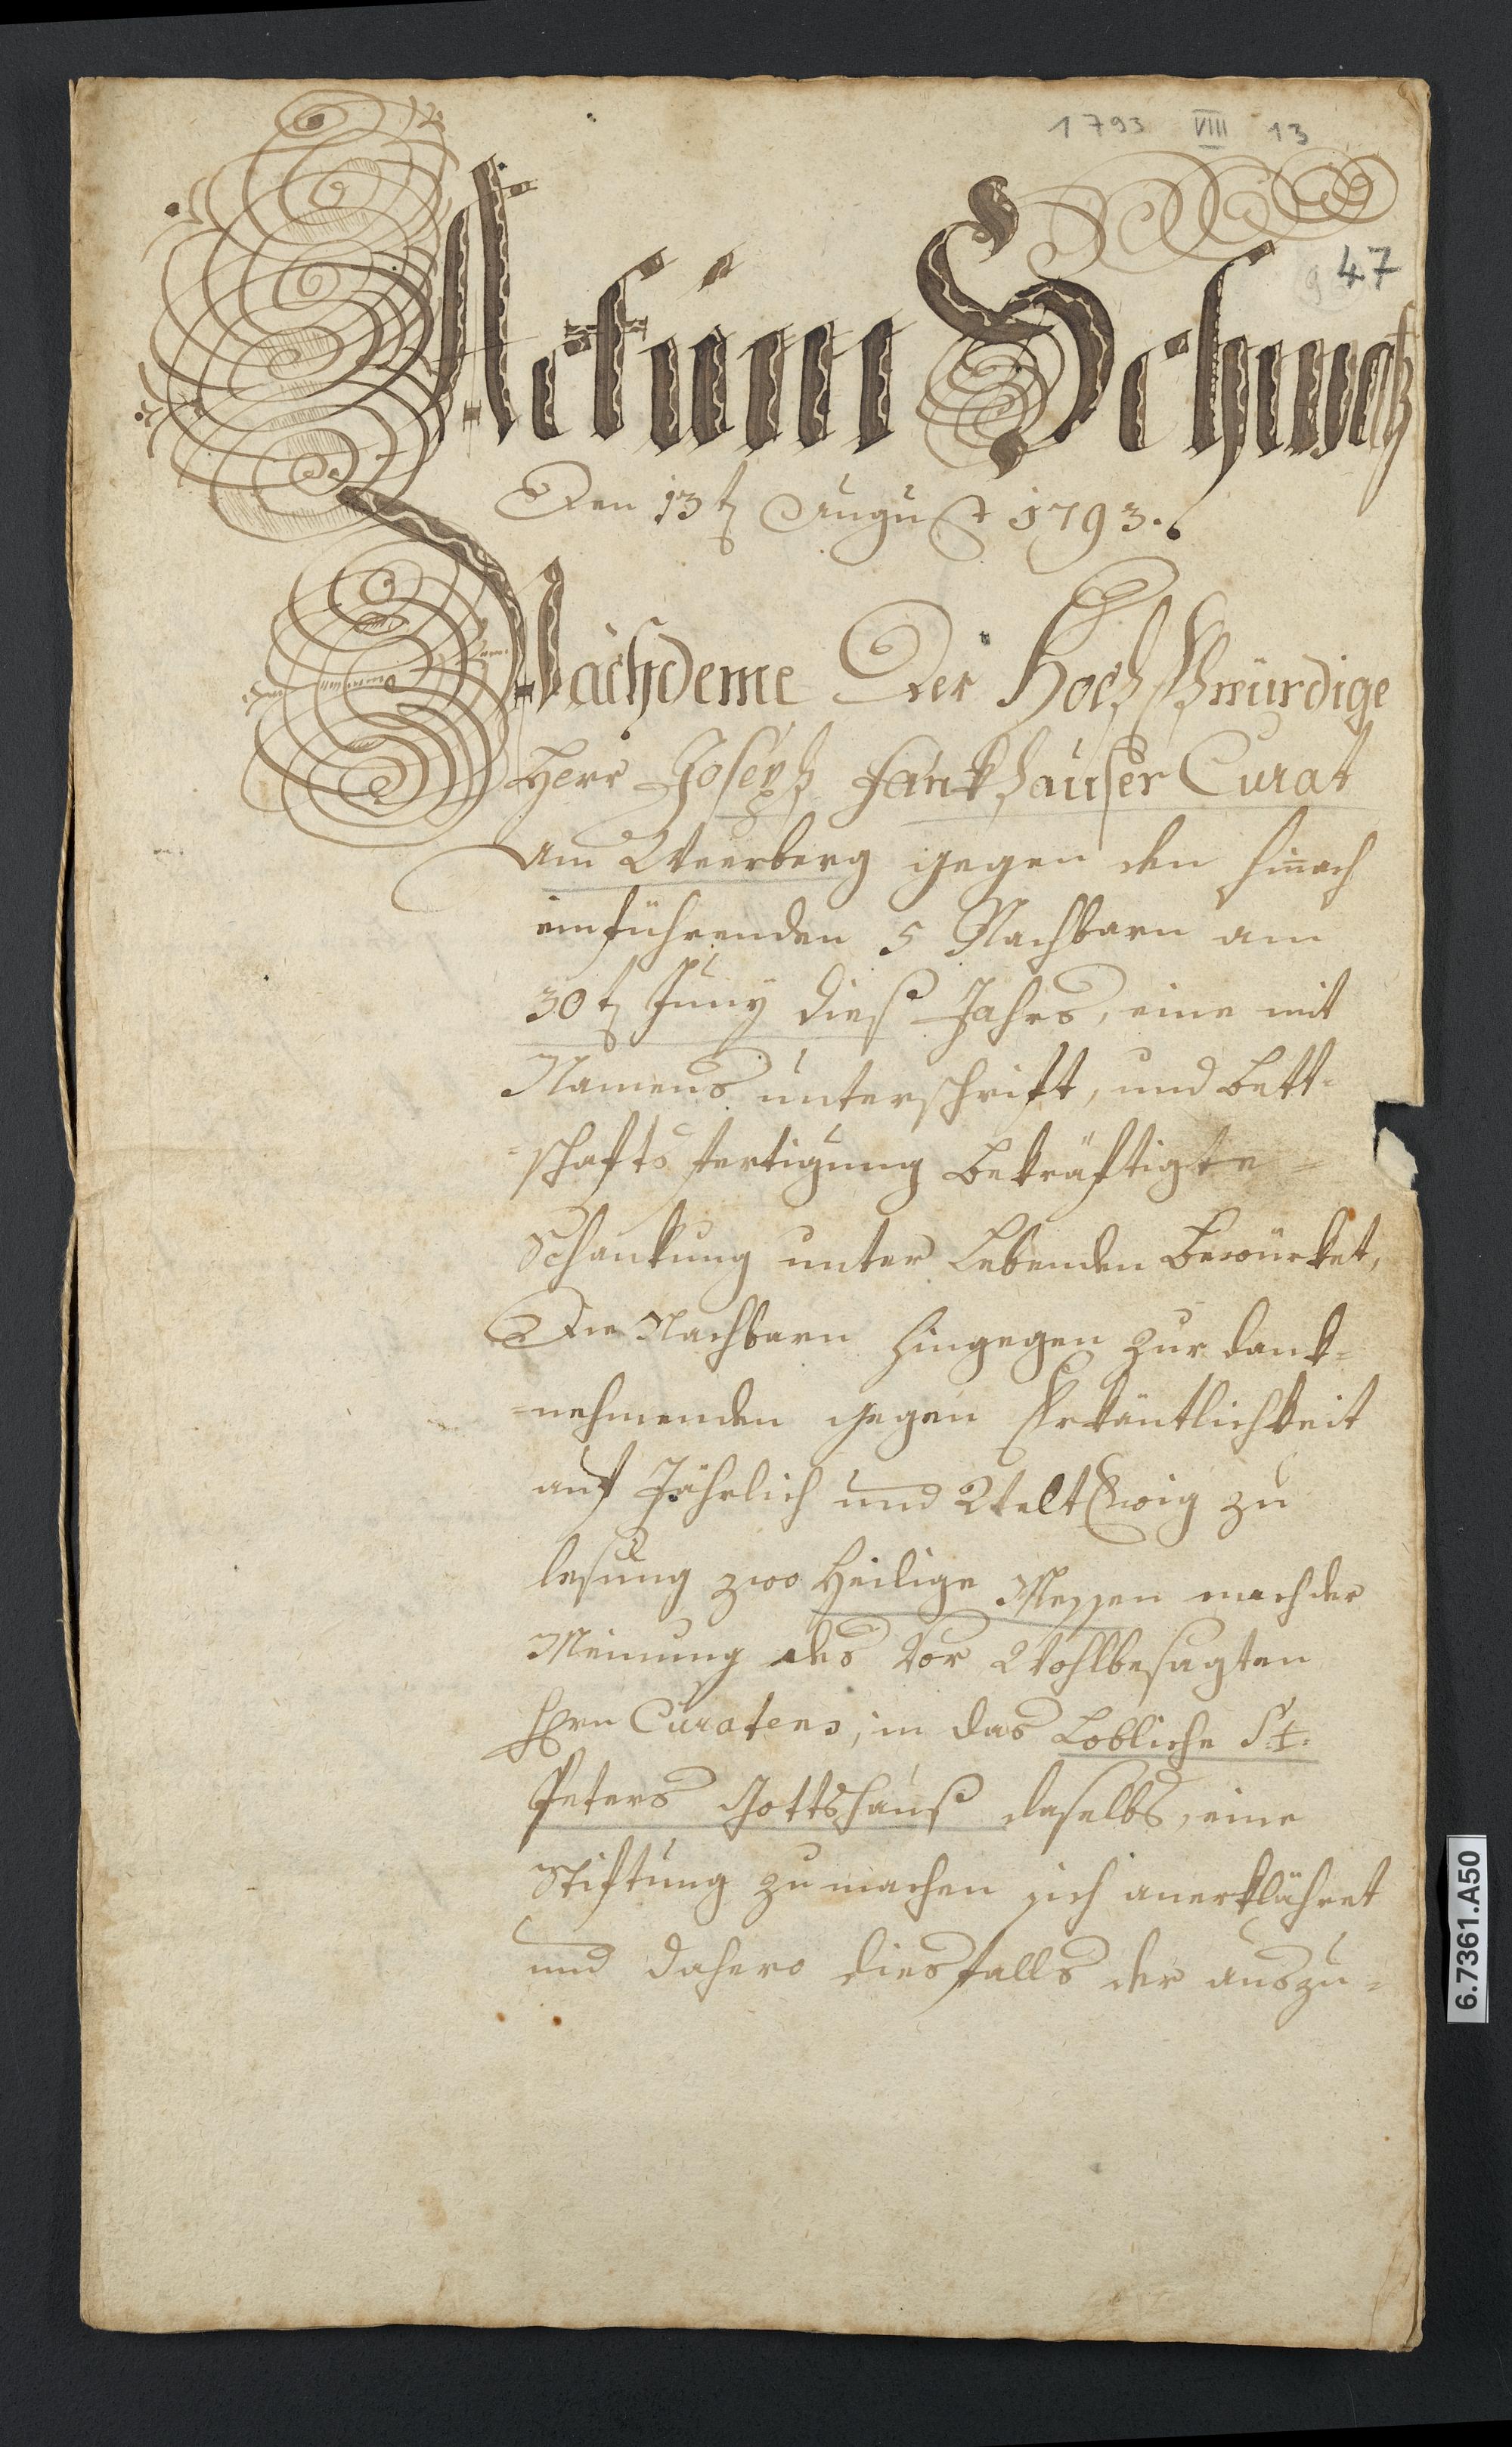 1793 VIII 13
47
Actum Schwatz
Den 13t August 1793.
Nachdeme Der HochEhrwürdige
Herr Joseph Fankhauser Curat
am Weerberg gegen den hinach
einführenden 5 Nachbarn am
30t Juny dieß Jahrs, eine mit
Namens unterschrift, und Bett=
=schafts fertigung bekräftigte=
Schankung unter Lebenden bewürket,
Die Nachbarn hingegen zur dank=
=nehmenden gegen Erkäntlichkeit
auf Jährlich und WeltEwig zu
lesung zwo Heilige Messen nach der
Meinung des vor Wohlbesagten
Hrn Curatens, in das Lobliche St:
Peters Gottshauß daselbs, eine
Stiftung zu machen sich anerklähret
und dahero diesfalls der auszu=
6.7361.A50